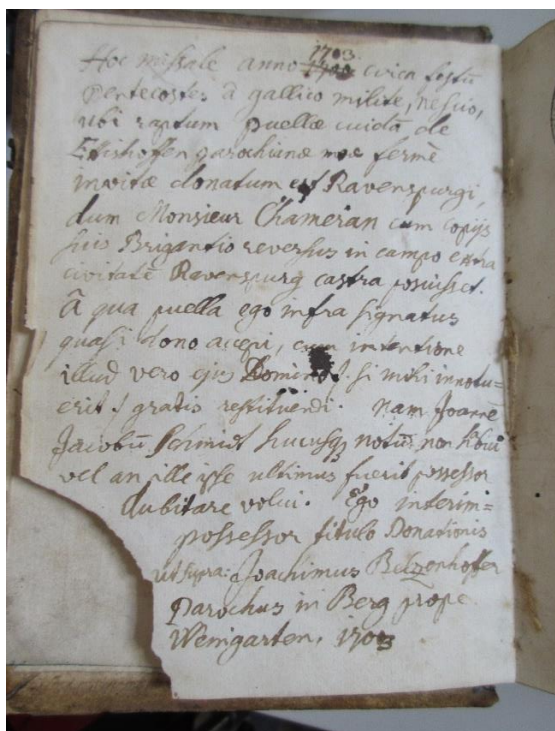 Hoc missale anno 1703 circa festū
Pentecostes à gallico milite, nescio,
ubi raptum puellæ cuidā de
Ettishoffen parochianæ meæ fermè
invitæ donatum est Ravenspurgi,
dum Monsieur Chameran cum copijs
suis Brigantio reversus in campo extra
civitatē Ravenspurg castra posuisset.
â qua puella ego infra signatus
quasi dono accepi, cum intentione
illud vero ejus Domino /: si mihi innotu=
erit :/ gratis restituendi. Nam Joannē
Jacobū Schmidt hucusq3 notū non habui
vel an ille ipse ultimus fuerit possessor
dubitare volui. Ego interim=
possessor titulo Donationis
ut supra: Joachimus Belzenhoffer
Parochus in Berg prope
Weingarten, 1703